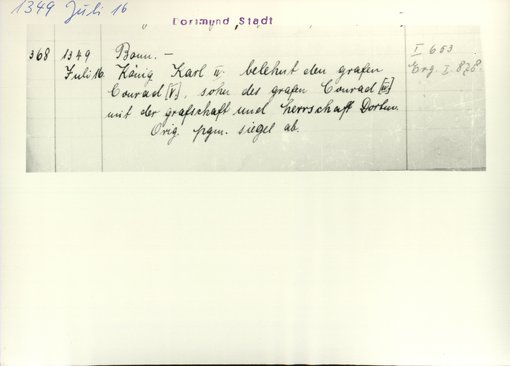 1349 Juli 16
Dortmund, Stadt
368 1349 Bonn. — I 653
Juli 16. König Karl IV. belehnt den grafen Erg. I. 878.
Conrad [V], sohn des grafen Conrad [III]
mit der grafschaft und herrschaft Dortm.
Orig. pgm. siegel ab.